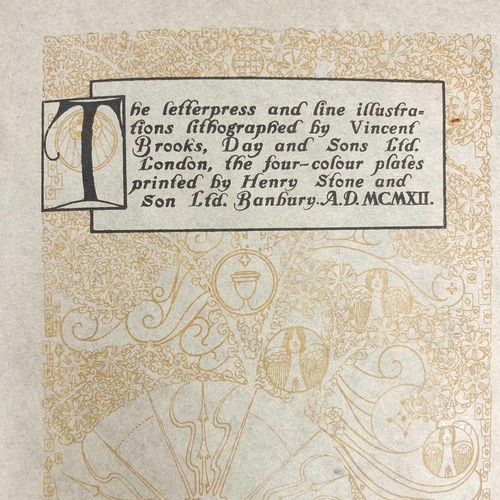 The letterpress and line illustra-
tions lithographed by Vincent
Brooks, Day and Sons Ltd.
London, the four-colour plates
printed by Henry Stone and
Son Ltd. Banbury. A.D. MCMXII.